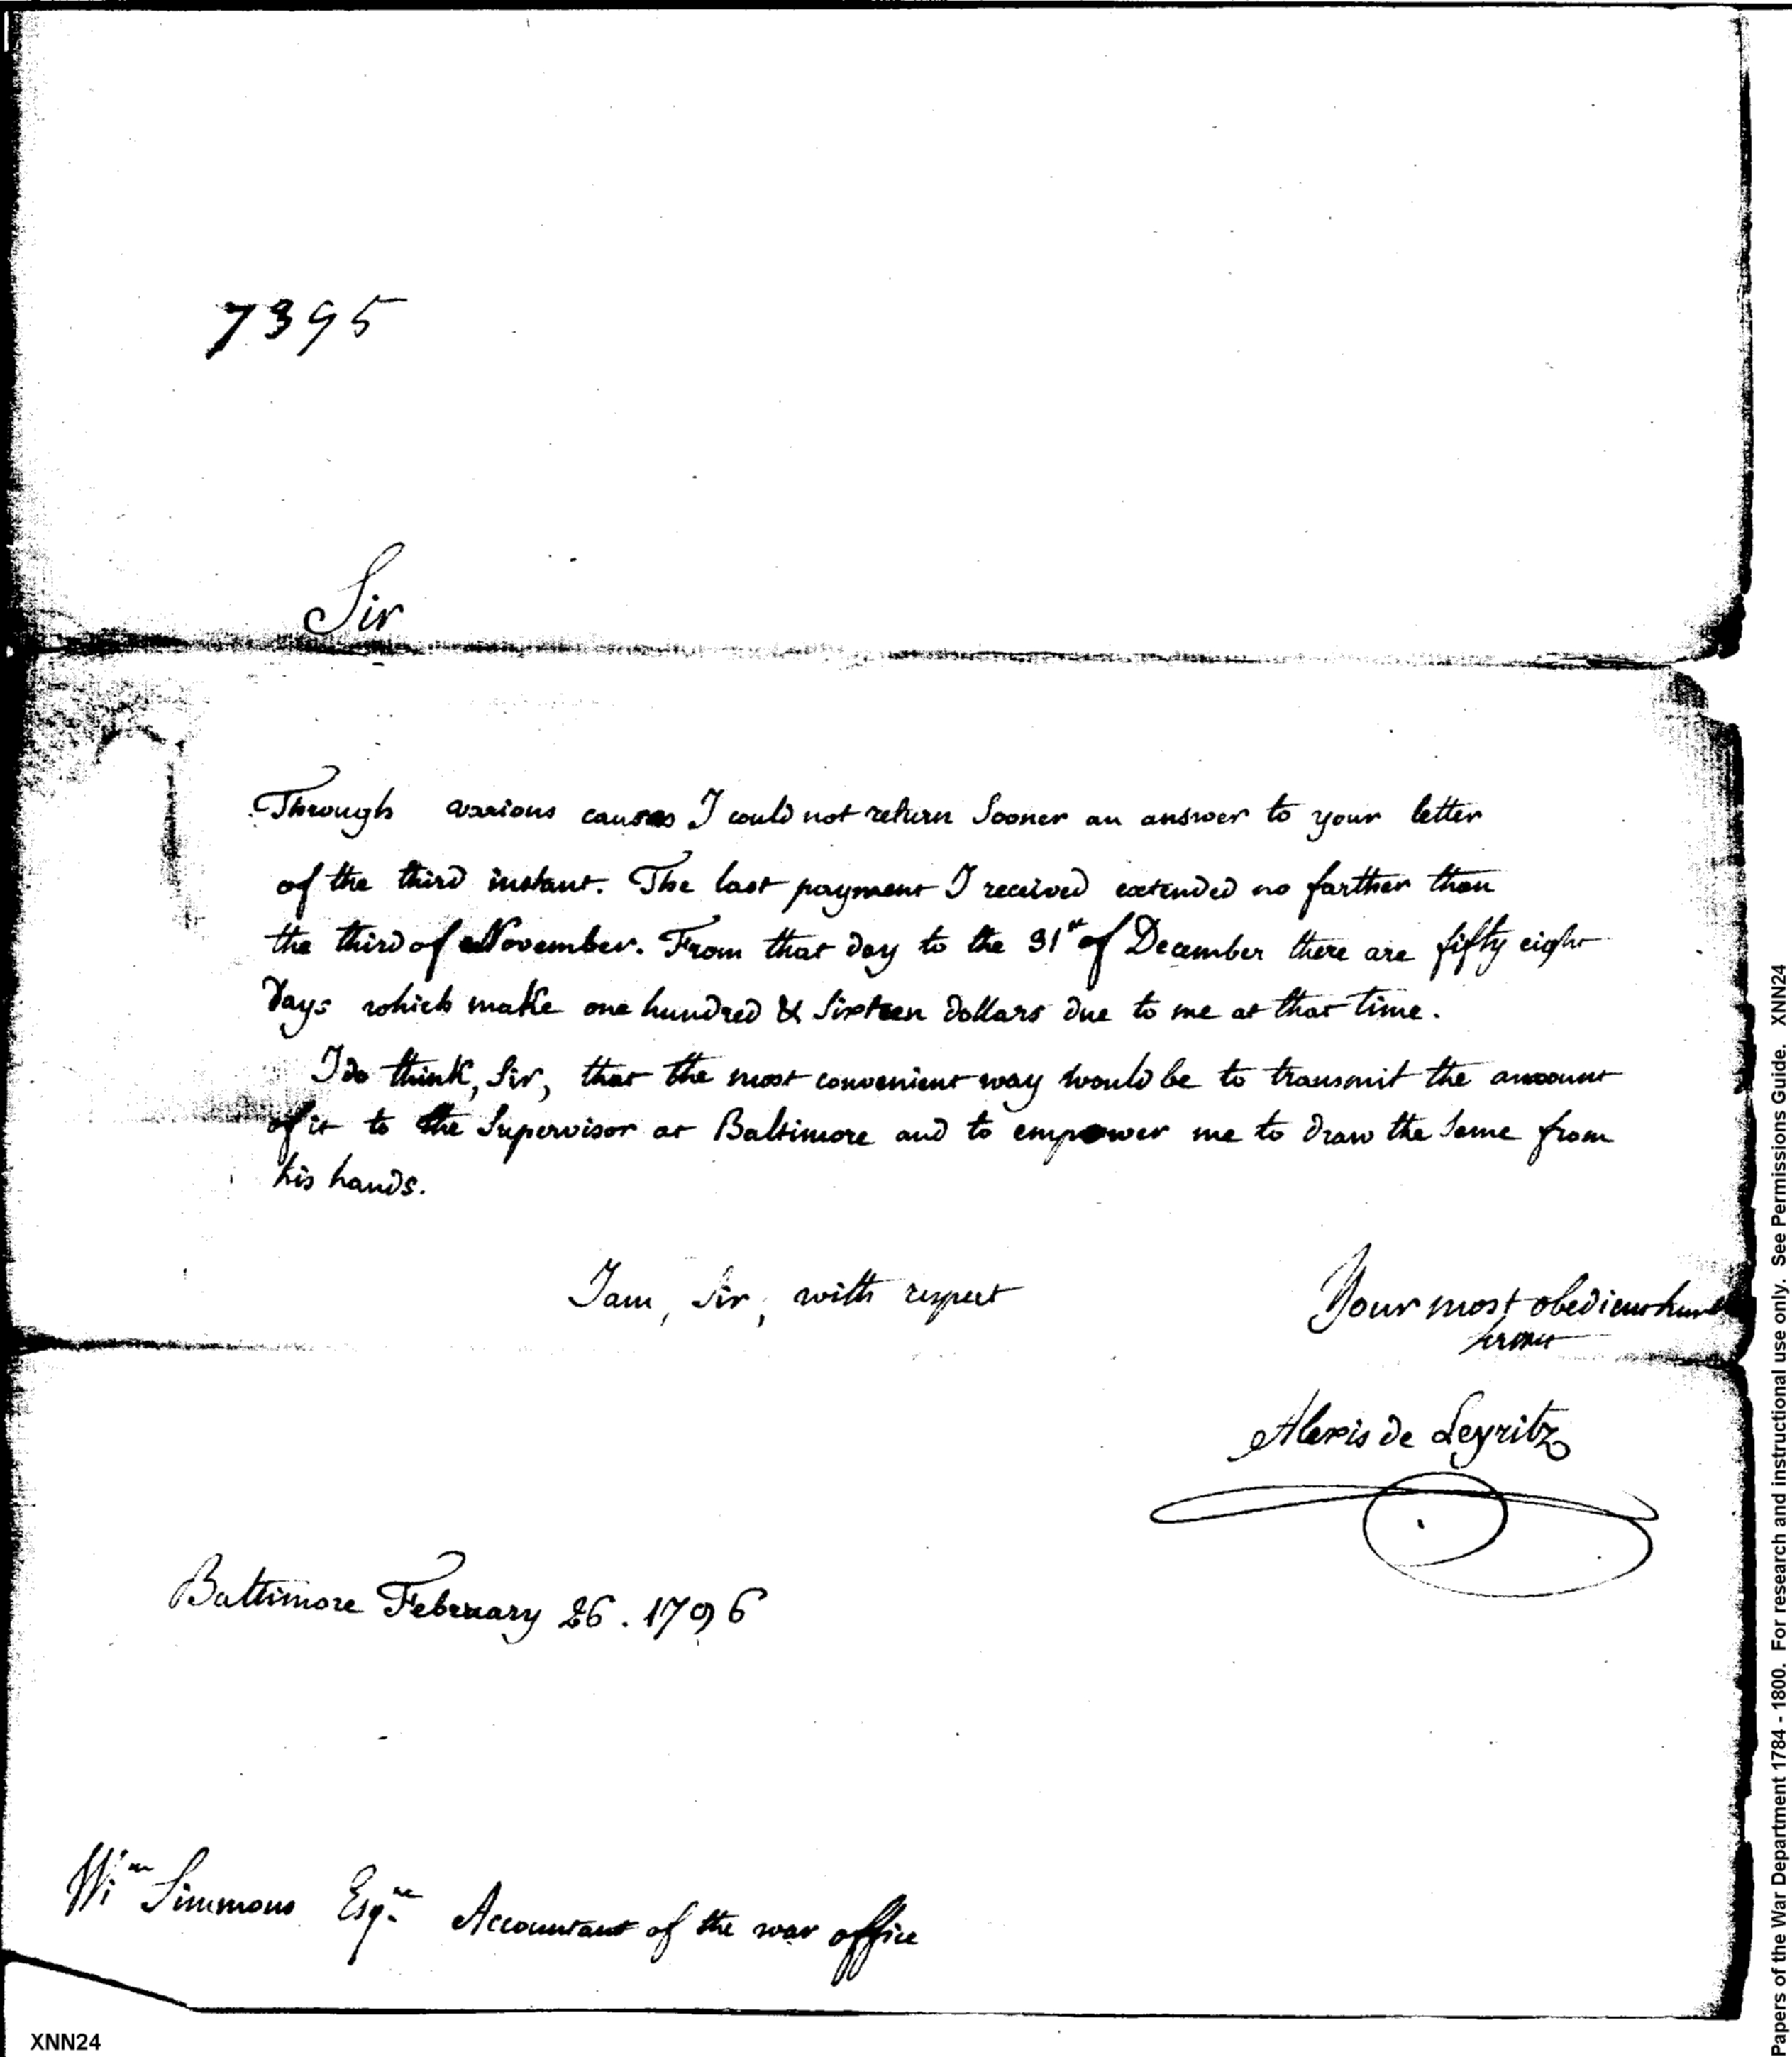 7395
Sir
Through various causes I could not return sooner an answer to your letter
of the third instant. The last payment I received extended no farther than
the third of November. From that day to the 31st of December there are fifty eight
days which make one hundred & sixteen dollars due to me at that time.
I do think, Sir, that the most convenient way would be to transmit the amount
of it to the Supervisor at Baltimore and to empower me to draw the same from
his hands.
I am, Sir, with respect
Your most obedient hum
servant
Alexis de Leyritz
Baltimore February 26. 1796
Wm Simmons Esqre Accountant of the war office
XNN24
Papers of the War Department 1784 - 1800. For research and instructional use only. See Permissions Guide. XNN24